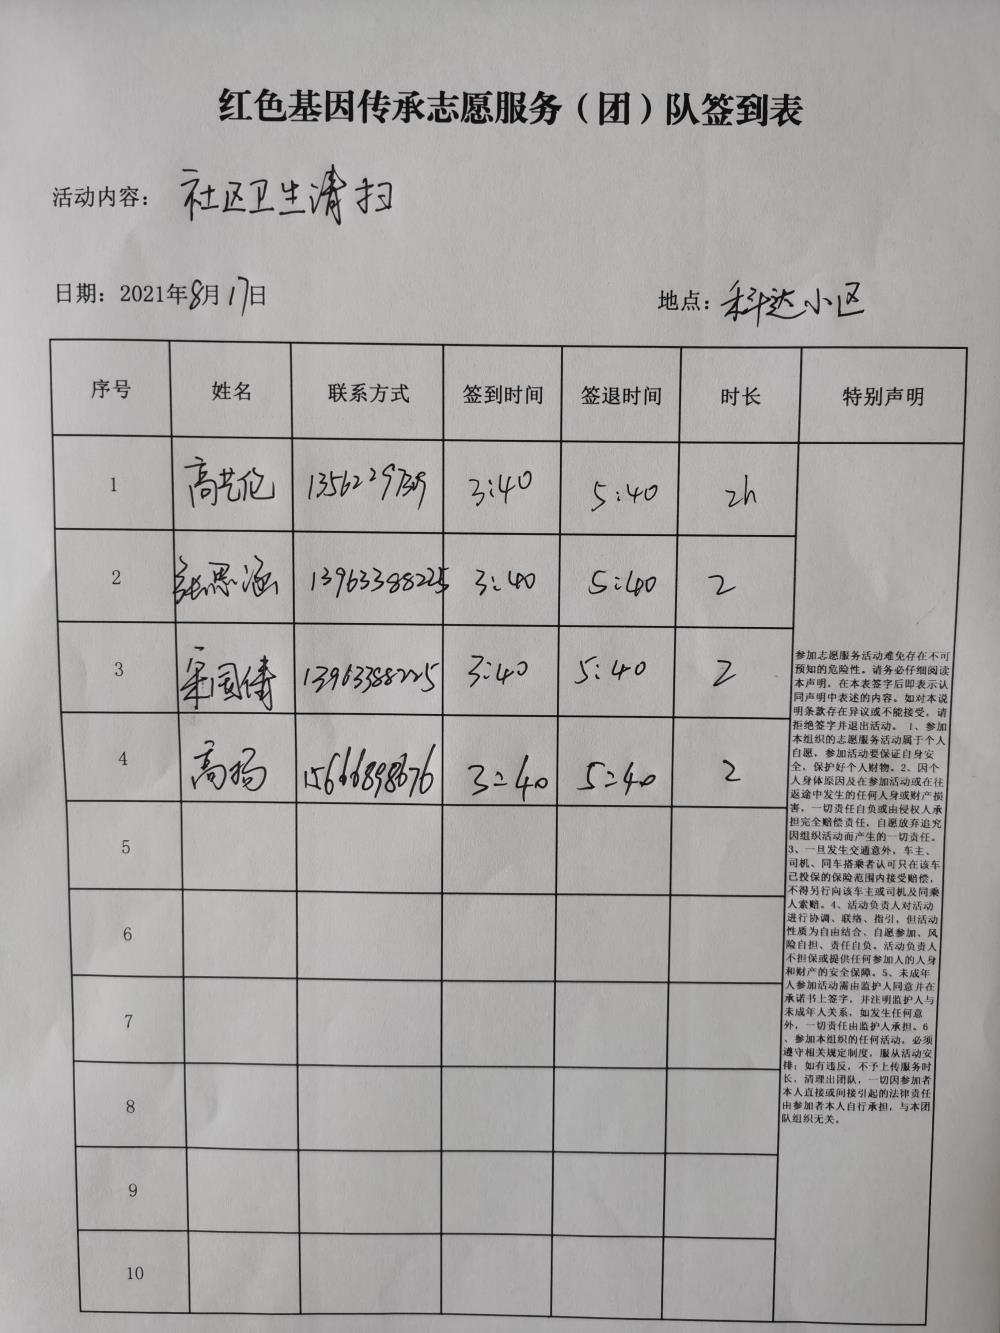 红色基因传承志愿服务（团）队签到表
活动内容： 社区卫生清扫
日期：2021年8月17日 地点：科达小区
序号 姓名 联系方式 签到时间 签退时间 时长 特别声明
1 高艺伦 3:40 5:40 2h
2 张思涵 13963388225 3:40 5:40 2
3 13963388225 3:40 5:40 2
4 高扬 15666898676 3:40 5:40 2
5
6
7
8
9
10
参加志愿服务活动难免存在不可
预知的危险性。请务必仔细阅读
本声明，在本表签字后即表示认
同声明中表述的内容。如对本说
明条款存在异议或不能接受，请
拒绝签字并退出活动。 1、参加
本组织的志愿服务活动属于个人
自愿，参加活动要保证自身安
全，保护好个人财物。2、因个
人身体原因及在参加活动或在往
返途中发生的任何人身或财产损
害，一切责任自负或由侵权人承
担完全赔偿责任，自愿放弃追究
因组织活动而产生的一切责任。
3、一旦发生交通意外，车主、
司机、同车搭乘者认可只在该车
已投保的保险范围内接受赔偿，
不得另行向该车主或司机及同乘
人索赔。4、活动负责人对活动
进行协调、联络、指引，但活动
性质为自由结合、自愿参加、风
险自担、责任自负。活动负责人
不担保或提供任何参加人的人身
和财产的安全保障。5、未成年
人参加活动需由监护人同意并在
承诺书上签字，并注明监护人与
未成年人关系，如发生任何意
外，一切责任由监护人承担。6
、参加本组织的任何活动，必须
遵守相关规定制度，服从活动安
排；如有违反，不予上传服务时
长，清理出团队，一切因参加者
本人直接或间接引起的法律责任
由参加者本人自行承担，与本团
队组织无关。